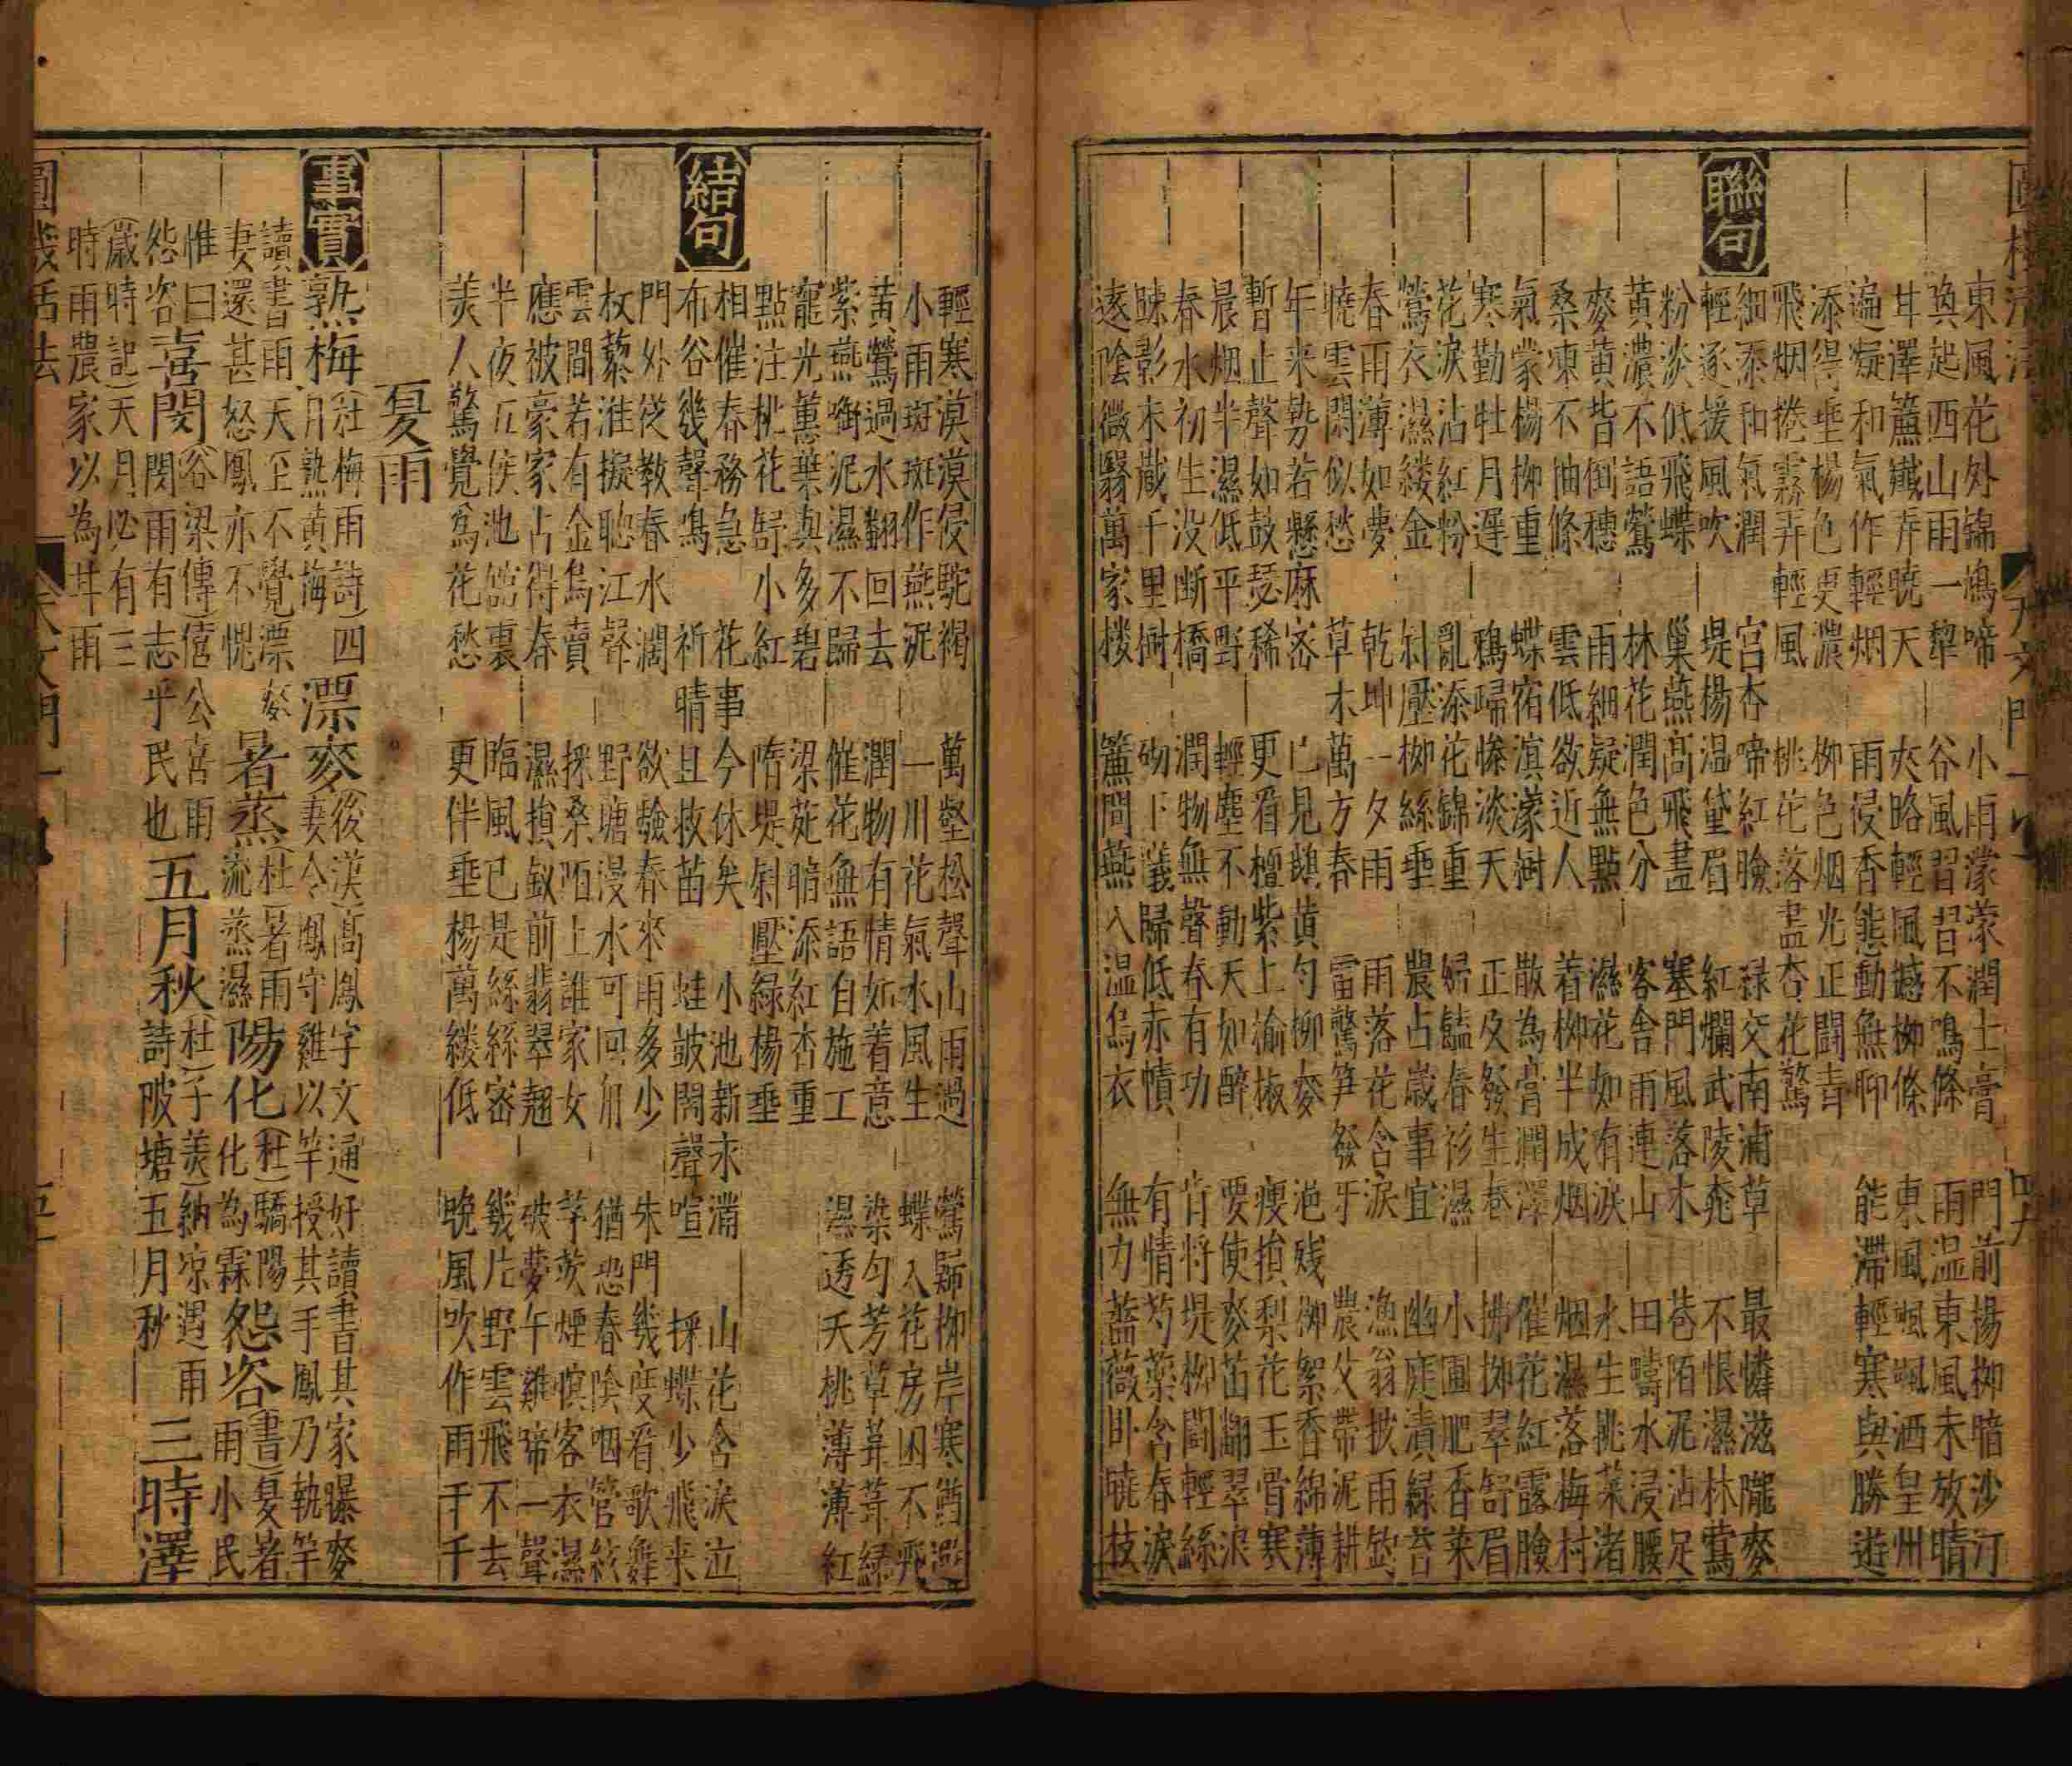 東風花外錦鳩啼 小雨濛濛潤土膏 門前楊柳暗沙汀
喚起西山雨一犂 谷風習習不鳴條 雨温東風未放晴
甘澤簾纎弄曉天 夾略輕風撼柳條 東風颯颯洒皇州
遍凝和氣作輕烟 雨浸香態動無聊 能滯輕寒與勝遊
添得垂楊色更濃 柳色烟光正鬪青
飛烟捲霧弄輕風 桃花落盡杏花驚
聯句
細添和氣潤 宮杏啼紅臉 緑交南浦草 最憐滋隴麥
輕逐援風吹 堤楊温黛眉 紅爛武陵桃 不恨濕林鶯
粉淡低飛蝶 巢燕髙飛盡 塞門風落木 巷陌泥沾足
黄濃不語鶯 林花潤色分 客舍雨連山 田疇水浸腰
麥黄皆倒穗 雨細疑無點 濕花如有淚 水生挑菜渚
桑東不抽條 雲低欲近人 着柳半成烟 烟濕落梅村
氣蒙楊柳重 蝶宿滇濛樹 散為膏潤澤 催花紅露臉
寒勤牡月遲 鴉歸慘淡天 正及發生巷 拂柳翠舒眉
花淚沾紅粉 亂添花錦重 婦饁春衫濕 小圃肥香菜
鶯衣濕縷金 斜壓柳絲垂 農占歳事宜 幽庭漬緑苔
春雨薄如夢 乾坤一夕雨 雨落花含淚 漁翁披雨釣
曉雲閑似愁 草木萬方春 雷驚笋發牙 農父帶泥耕
年来勢若懸麻密 已見鵝黄匀柳麥 浥殘柳絮香綿薄
暫止聲如鼓瑟稀 更看檀紫上榆椒 瘦損梨花玉骨寒
晨烟半濕低平野 輕塵不動天如醉 要使麥苗翻翠浪
春水初生没断橋 潤物無聲春有功 肯將堤柳鬪輕絲
疎影未蔵千里樹 砌下蟻歸低赤幘 有情芍藥含春淚
遂陰微翳萬家楼 簾間燕入温烏衣 無力薔薇卧曉枝
輕寒漠漠侵駝褐 萬壑松聲山雨過 鶯歸柳岸寒猶澀
小雨斑斑作燕泥 一川花氣水風生 蝶入花房困不飛
黄鶯過水翻回去 潤物有情如着意 染匀芳草茸茸緑
紫燕啣泥濕不歸 催花無語自施工 濕透夭桃薄薄紅
寵光蕙葉與多碧 梁苑暗添紅杏重
點注桃花舒小紅 隋堤斜壓緑楊垂
結句
相催春務急 花事今休矣 小池新水滿 山花含淚泣
布谷幾聲鳴 祈晴且救苗 蛙皷閙聲喧 採蝶少飛来
門外従教春水濶 欲驗春來雨多少 朱門幾度看歌舞
杖藜准擬聴江聲 野塘漫水可回舟 猶恐春陰咽管絃
雲間若有金烏賣 採桑陌上誰家女 芋茨煙慎客衣濕
應被豪家占得春 濕損釵前翡翠翹 破夢午雞啼一聲
半夜五侯池舘裏 臨風已是絲絲密 幾片野雲飛不去
美人驚覺為花愁 更伴垂楊萬縷低 晚風吹作雨千千
夏雨
事實
熟梅(杜梅雨詩)四月熟黄梅 漂麥(後漢)髙鳳字文通好讀書其家曝麥妻令鳳守雞以竿授其手鳳乃執竿
讀書雨天至不覺漂麥妻還甚怒鳳亦不愧 暑蒸(杜)暑雨流蒸濕 陽化(杜)驕陽化為霖 怨咨(書)夏暑雨小民
惟曰怨咨 喜閔(谷梁傳)僖公喜雨閔雨有志乎民也 五月秋(杜)子美納凉遇雨詩陂塘五月秋 三時澤
(歳時記)天月必有三時雨農家以為甘雨